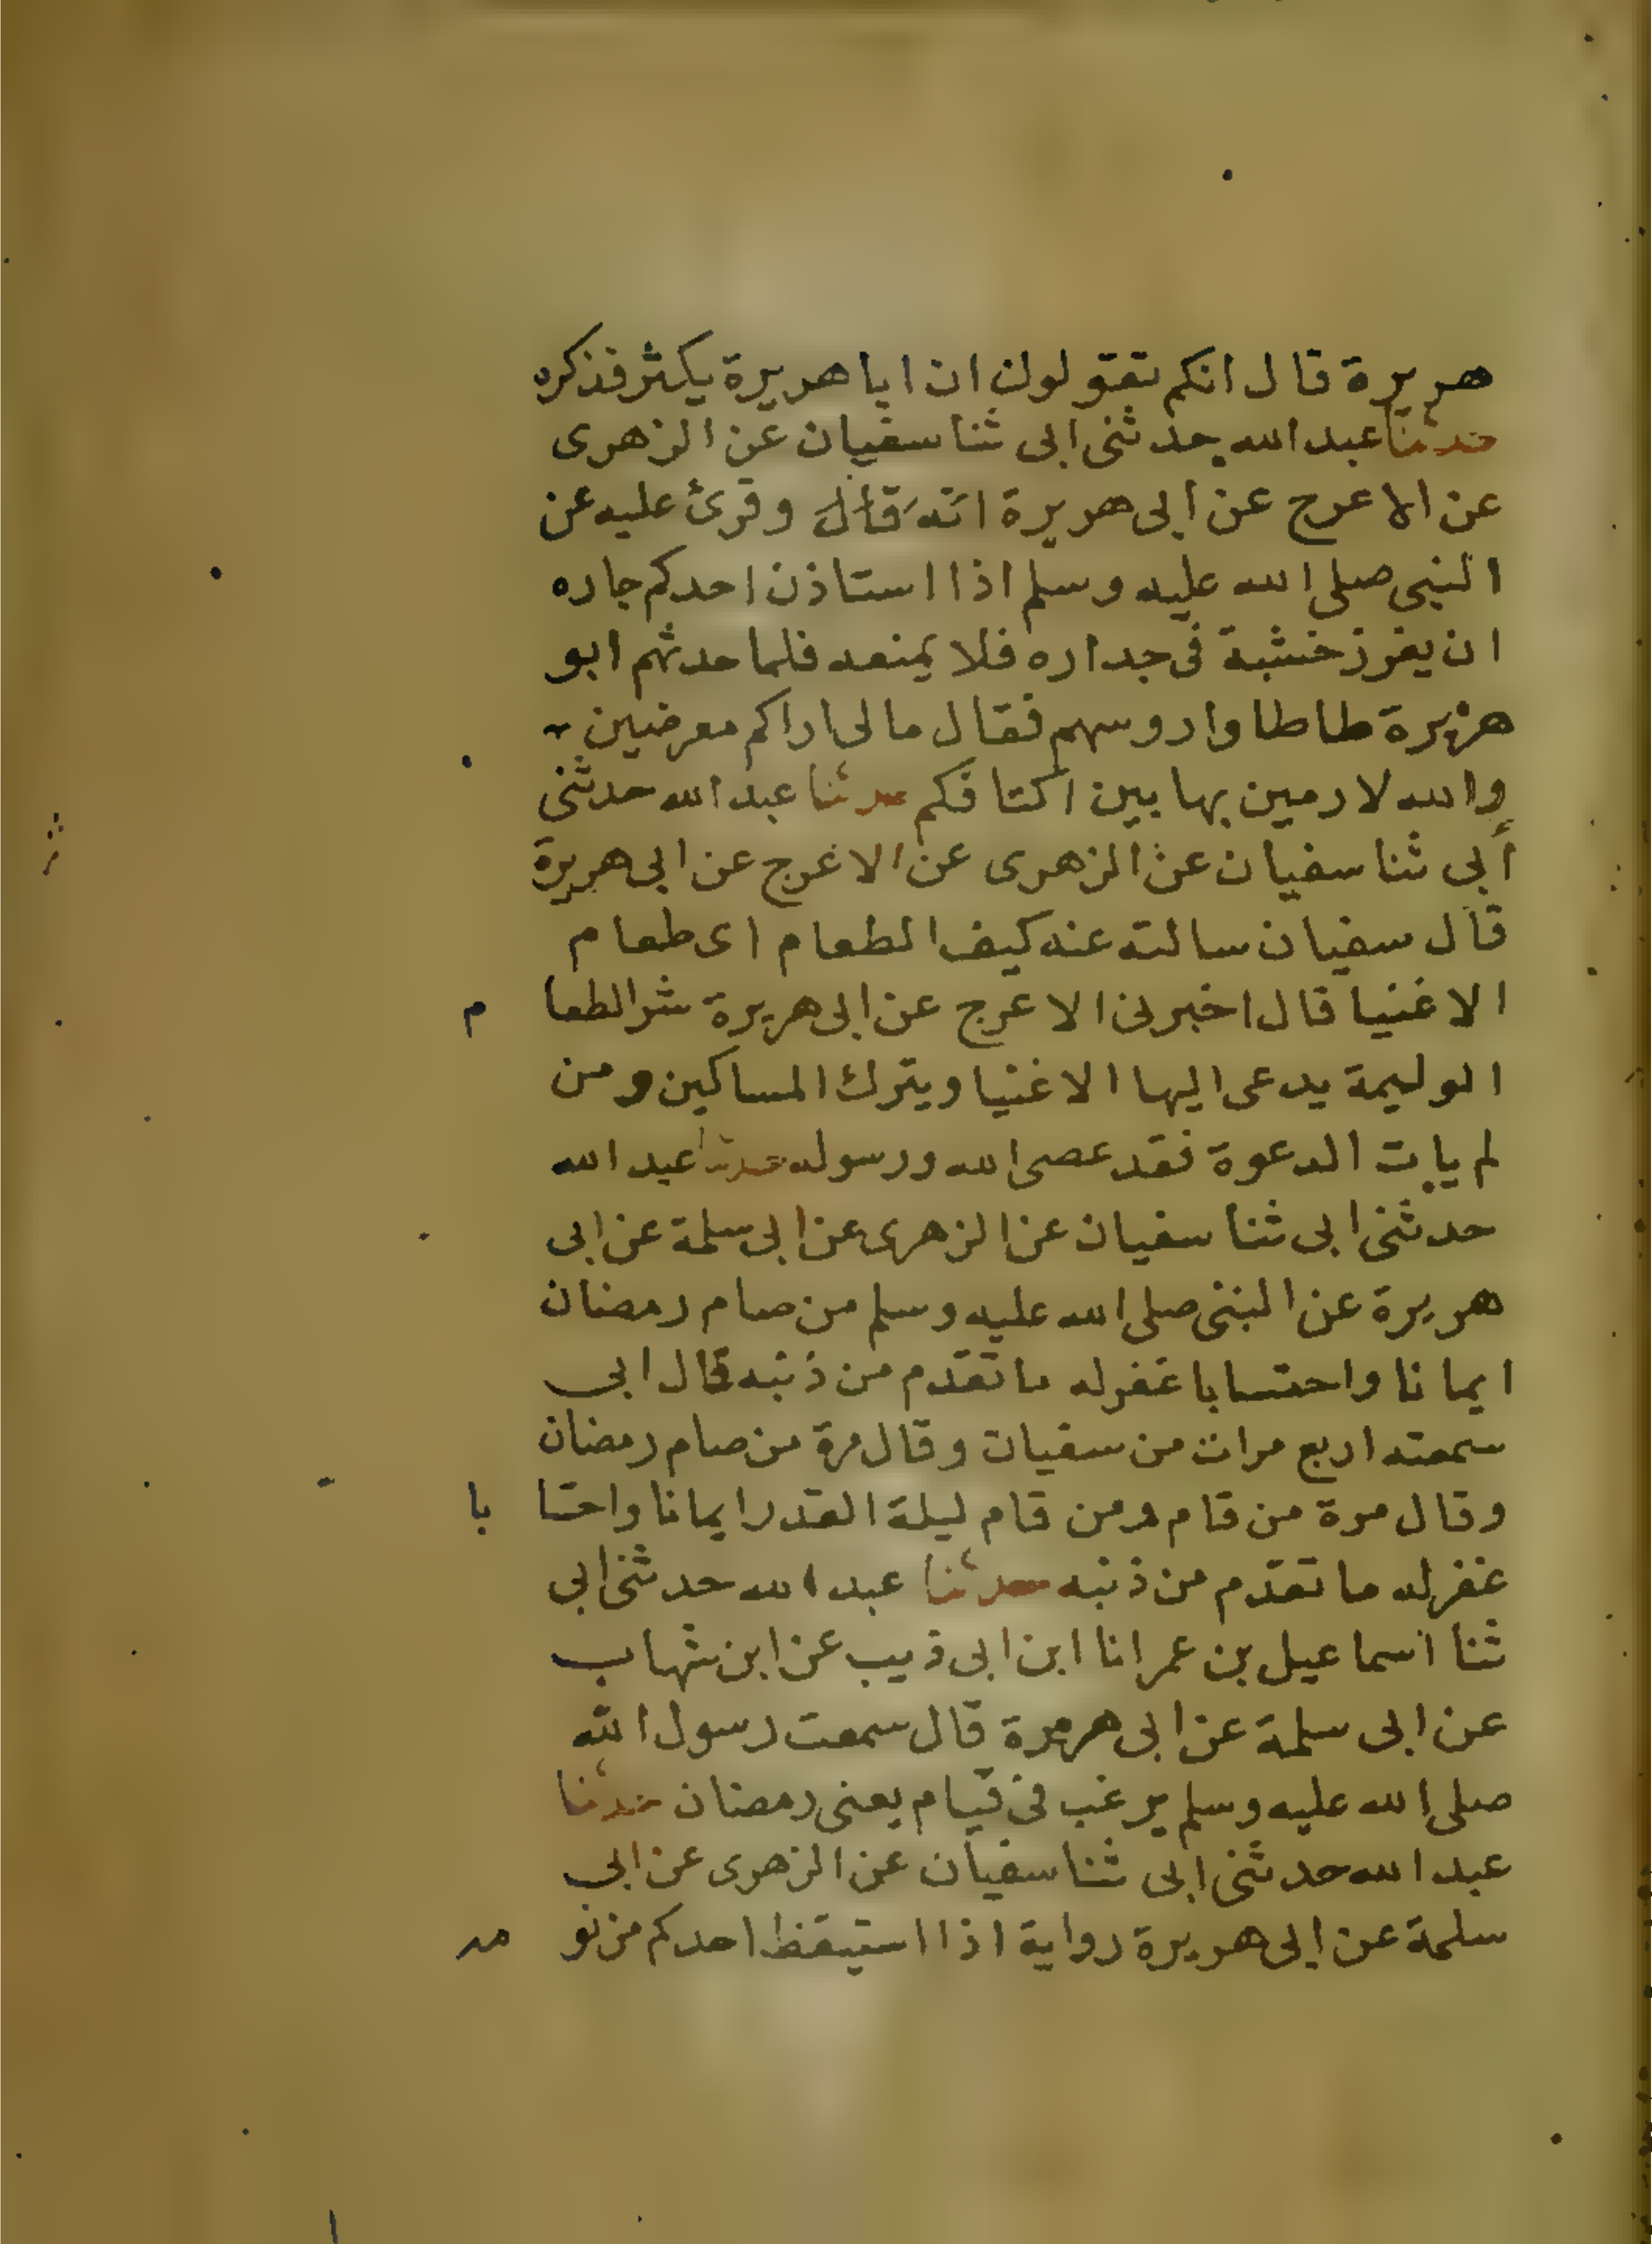 هريرة قال انكم تقولون ان ابا هريرة يكثر فذكره
حدثنا عبد الله حدثنى ابى ثنا سفيان عن الزهرى
عن الاعرج عن ابى هريرة انه قال وقرئ عليه عن
النبى صلى الله عليه وسلم اذا استاذن احدكم جاره
ان يغرز خشبة فى جداره فلا يمنعه فلما حدثهم ابو
هريرة طاطاوا روسهم فقال مالى اراكم معرضين
والله لارمين بها بين اكتافكم حدثنا عبد الله حدثنى
أبى ثنا سفيان عن الزهرى عن الاعرج عن ابى هريرة
قال سفيان سالته عنه كيف الطعام اى طعام
الاغنيا قال اخبرنى الاعرج عن ابى هريرة شر الطعام
الوليمة يدعى اليها الاغنيا ويترك المساكين ومن
لم يات الدعوة فقد عصى الله ورسوله حدثنا عبد الله
حدثنى ابى ثنا سفيان عن الزهرى عن ابى سلمة عن ابى
هريرة عن النبى صلى الله عليه وسلم من صام رمضان
ايمانا واحتسابا غفرله ما تقدم من ذنبه قال ابى
سمعته اربع مرات من سفيان وقال مرة من صام رمضان
وقال مرة من قام ومن قام ليلة القدر ايمانا واحتسابا
غفرله ما تقدم من ذنبه حدثنا عبد الله حدثنى ابى
ثنا اسماعيل بن عمر انا ابن ابى ذيب عن ابن شهاب
عن ابى سلمة عن ابى هريرة قال سمعت رسول الله
صلى الله عليه وسلم يرغب فى قيام يعنى رمضان حدثنا
عبد الله حدثنى ابى ثنا سفيان عن الزهرى عن ابى
سلمة عن ابى هريرة رواية اذا استيقظ احدكم من نومه